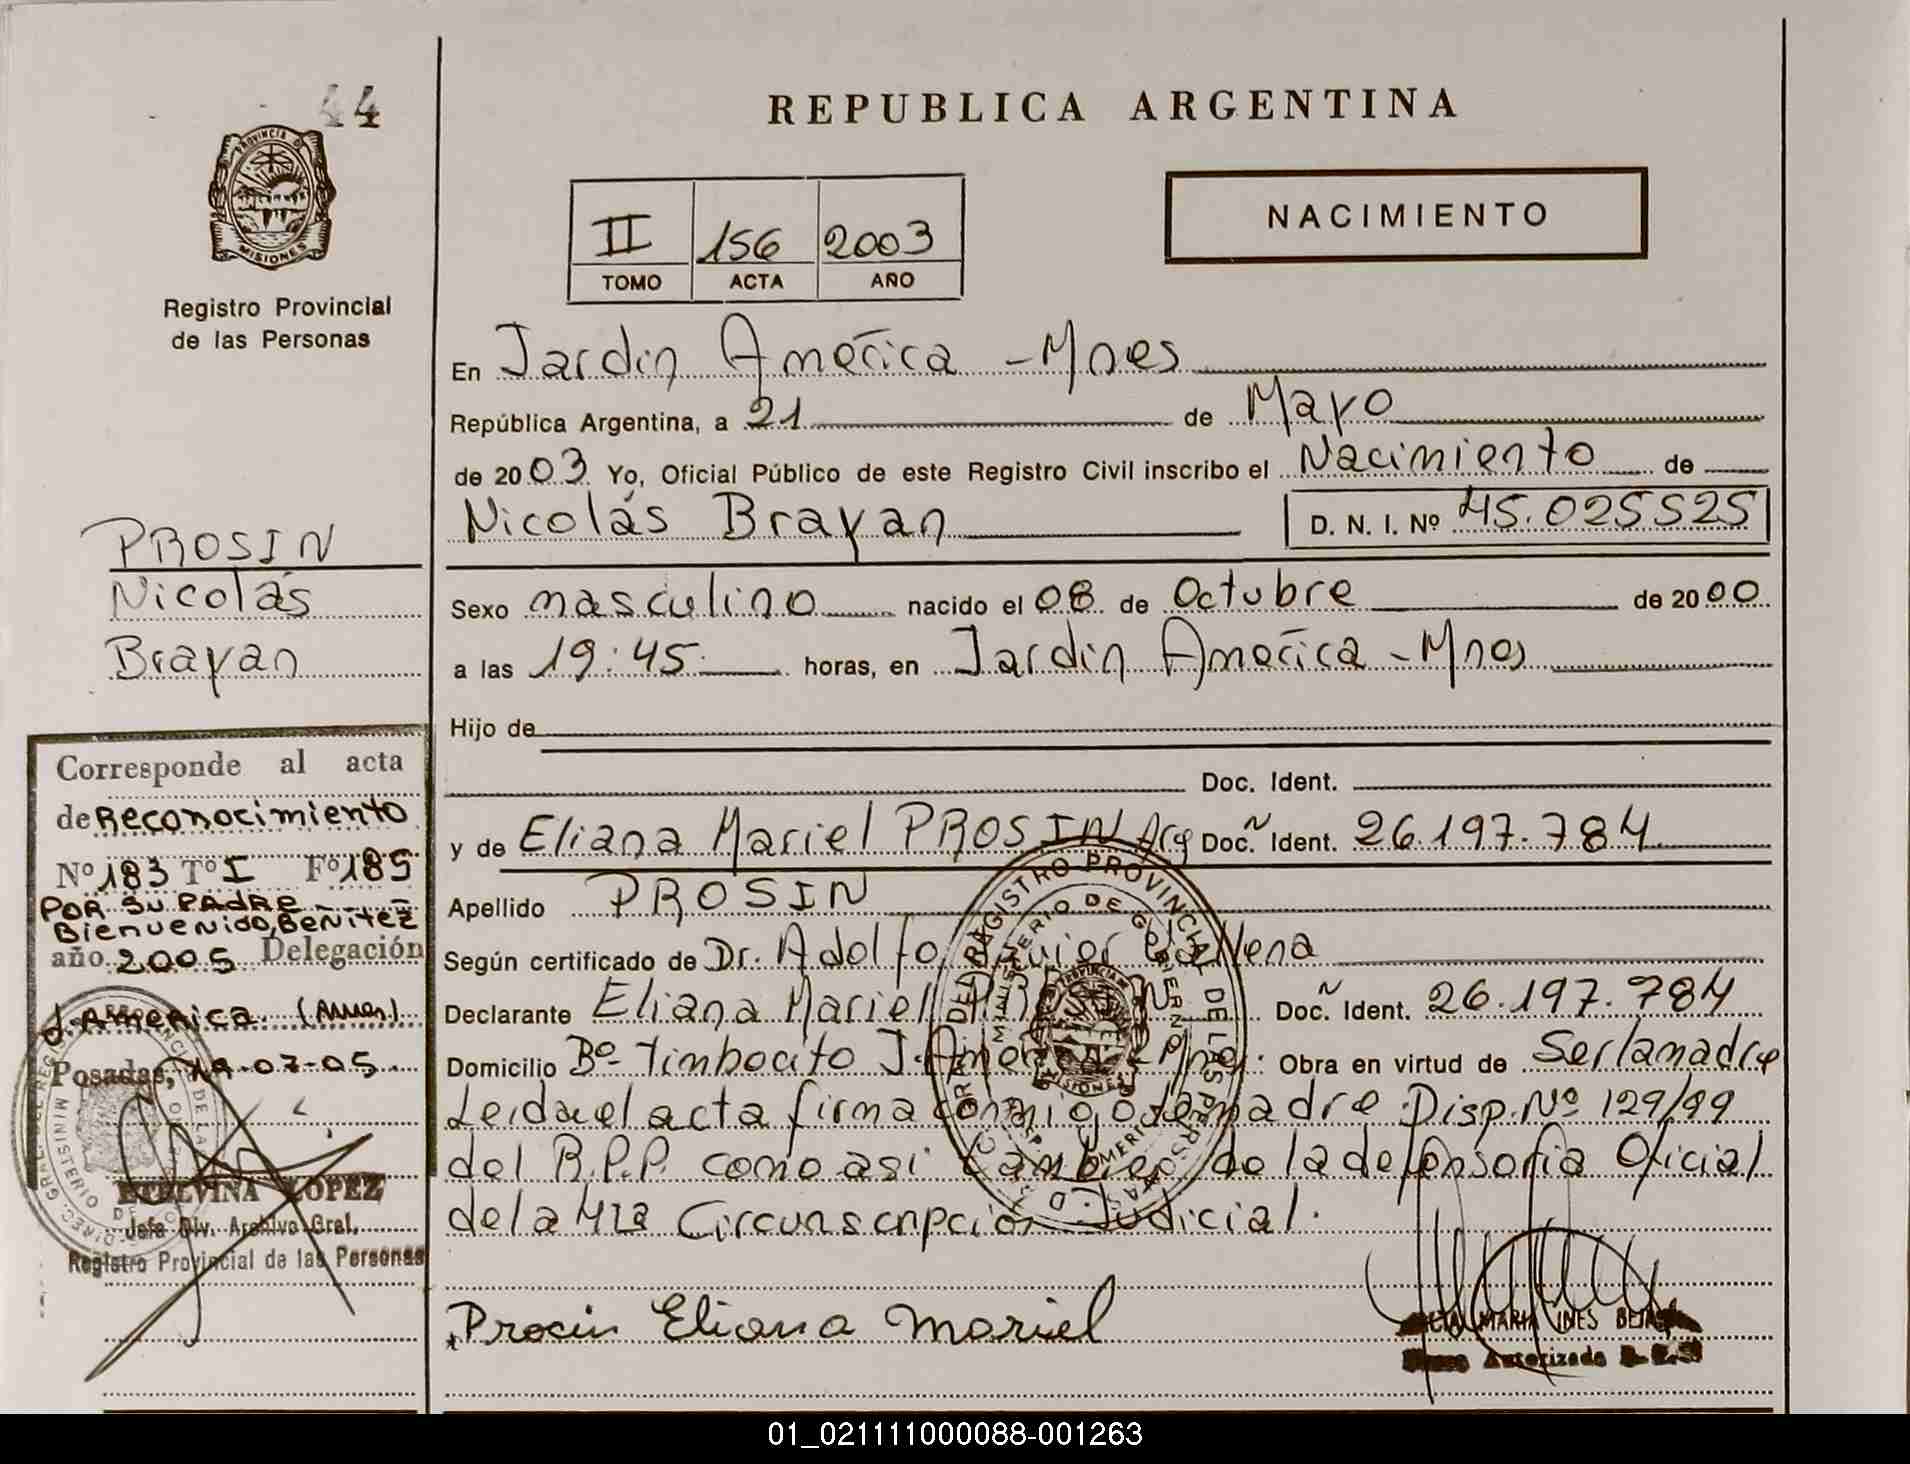 44
PROVINCIA DE
MISIONES
Registro Provincial
de las Personas
REPUBLICA ARGENTINA
II 156 2003
TOMO ACTA AÑO
NACIMIENTO
En Jardin América - Mnes
República Argentina, a 21 de Mayo
de 2003 Yo, Oficial Público de este Registro Civil inscribo el Nacimiento de
Nicolás Brayan D. N. I. Nº 45.025525
PROSIN
Nicolás
Brayan
Sexo masculino nacido el 08 de Octubre de 2000
a las 19:45 horas, en Jardin América - Mnes
Hijo de
Doc. Ident.
y de Eliana Mariel PROSIN Arg Doc. Ident. 26.197.784
Apellido PROSIN
Según certificado de Dr. Adolfo Javier
Declarante Eliana Mariel Doc. Ident. 26.197.784
Domicilio Bº Timbocito J. Obra en virtud de Ser la madre
Leida el acta firma conmigo la madre. Disp. Nº 129/99
del R.P.P. como asi tambien de la defensoria Oficial
de la 4ta Circunscripción Judicial.
Procin Eliana Mariel
MARIA INES
Autorizada
Corresponde al acta
de Reconocimiento
Nº 183 Tº I Fº 185
POR SU PADRE
Bienvenido, Benitez
año 2005 Delegación
J. America (Mnes)
Posadas, 19-07-05
ETELVINA LOPEZ
Jefa Div. Archivo Gral.
Registro Provincial de las Personas
01_021111000088-001263